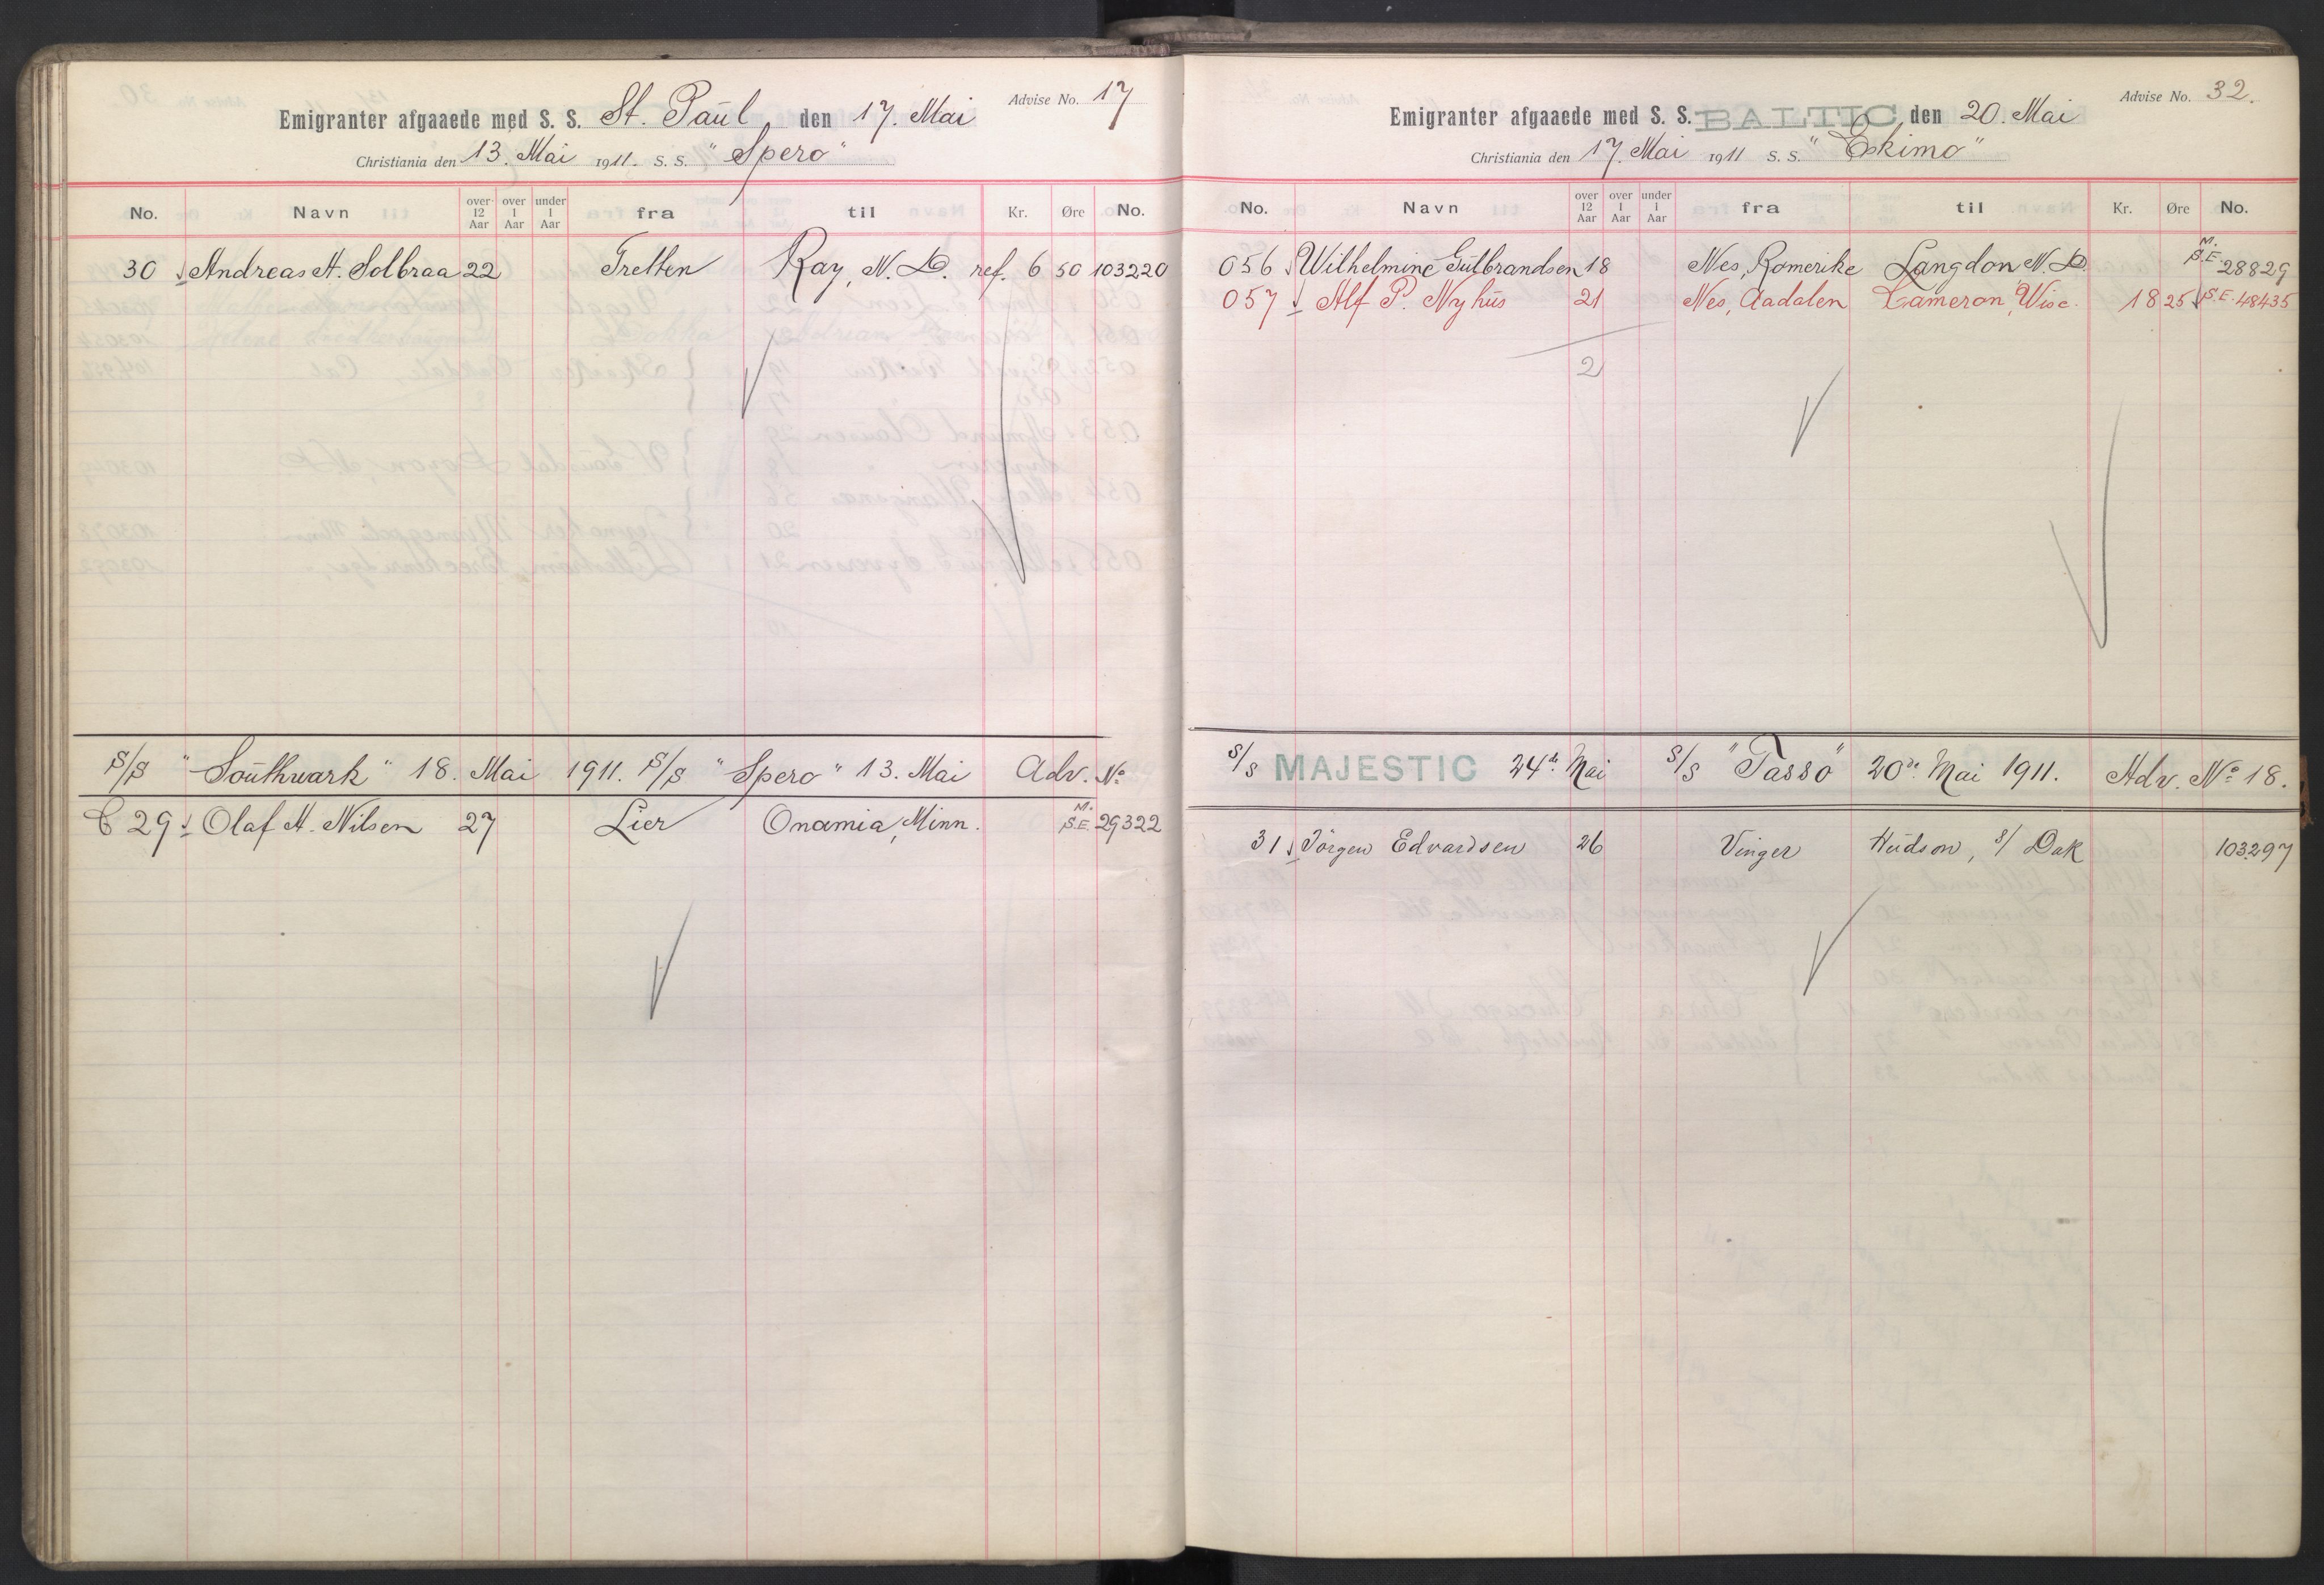 Advise No. 17
Emigranter afgaaede med S. S. St. Paul den 17. Mai
Christiania den 13. Mai 1911. S. S. "Spero"
No. Navn over 12 Aar over 1 Aar under 1 Aar fra til Kr. Øre No.
30 Andreas H. Solbraa 22 Tretten Ray, N. D. ref. 6 50 103220
S/S "Southwark" 18. Mai 1911. S/S "Spero" 13. Mai Adv. No
C 29 Olaf H. Nilsen 27 Lier Onamia, Minn. M. S.E. 29322
Advise No. 32.
Emigranter afgaaede med S. S. BALTIC den 20. Mai
Christiania den 17. Mai 1911 S. S. "Eskimo"
No. Navn over 12 Aar over 1 Aar under 1 Aar fra til Kr. Øre No.
056 Wilhelmine Gulbrandsen 18 Nes, Romerike Langdon N. D. M. S.E. 28829
057 Alf P. Nyhus 21 Nes, Aadalen Cameron, Wisc. 18 25 S.E. 48435
2
S/S MAJESTIC 24de Mai S/S "Tasso" 20de Mai 1911. Adv. No 18.
31 Jörgen Edvardsen 26 Vinger Hudson, S/ Dak 103297